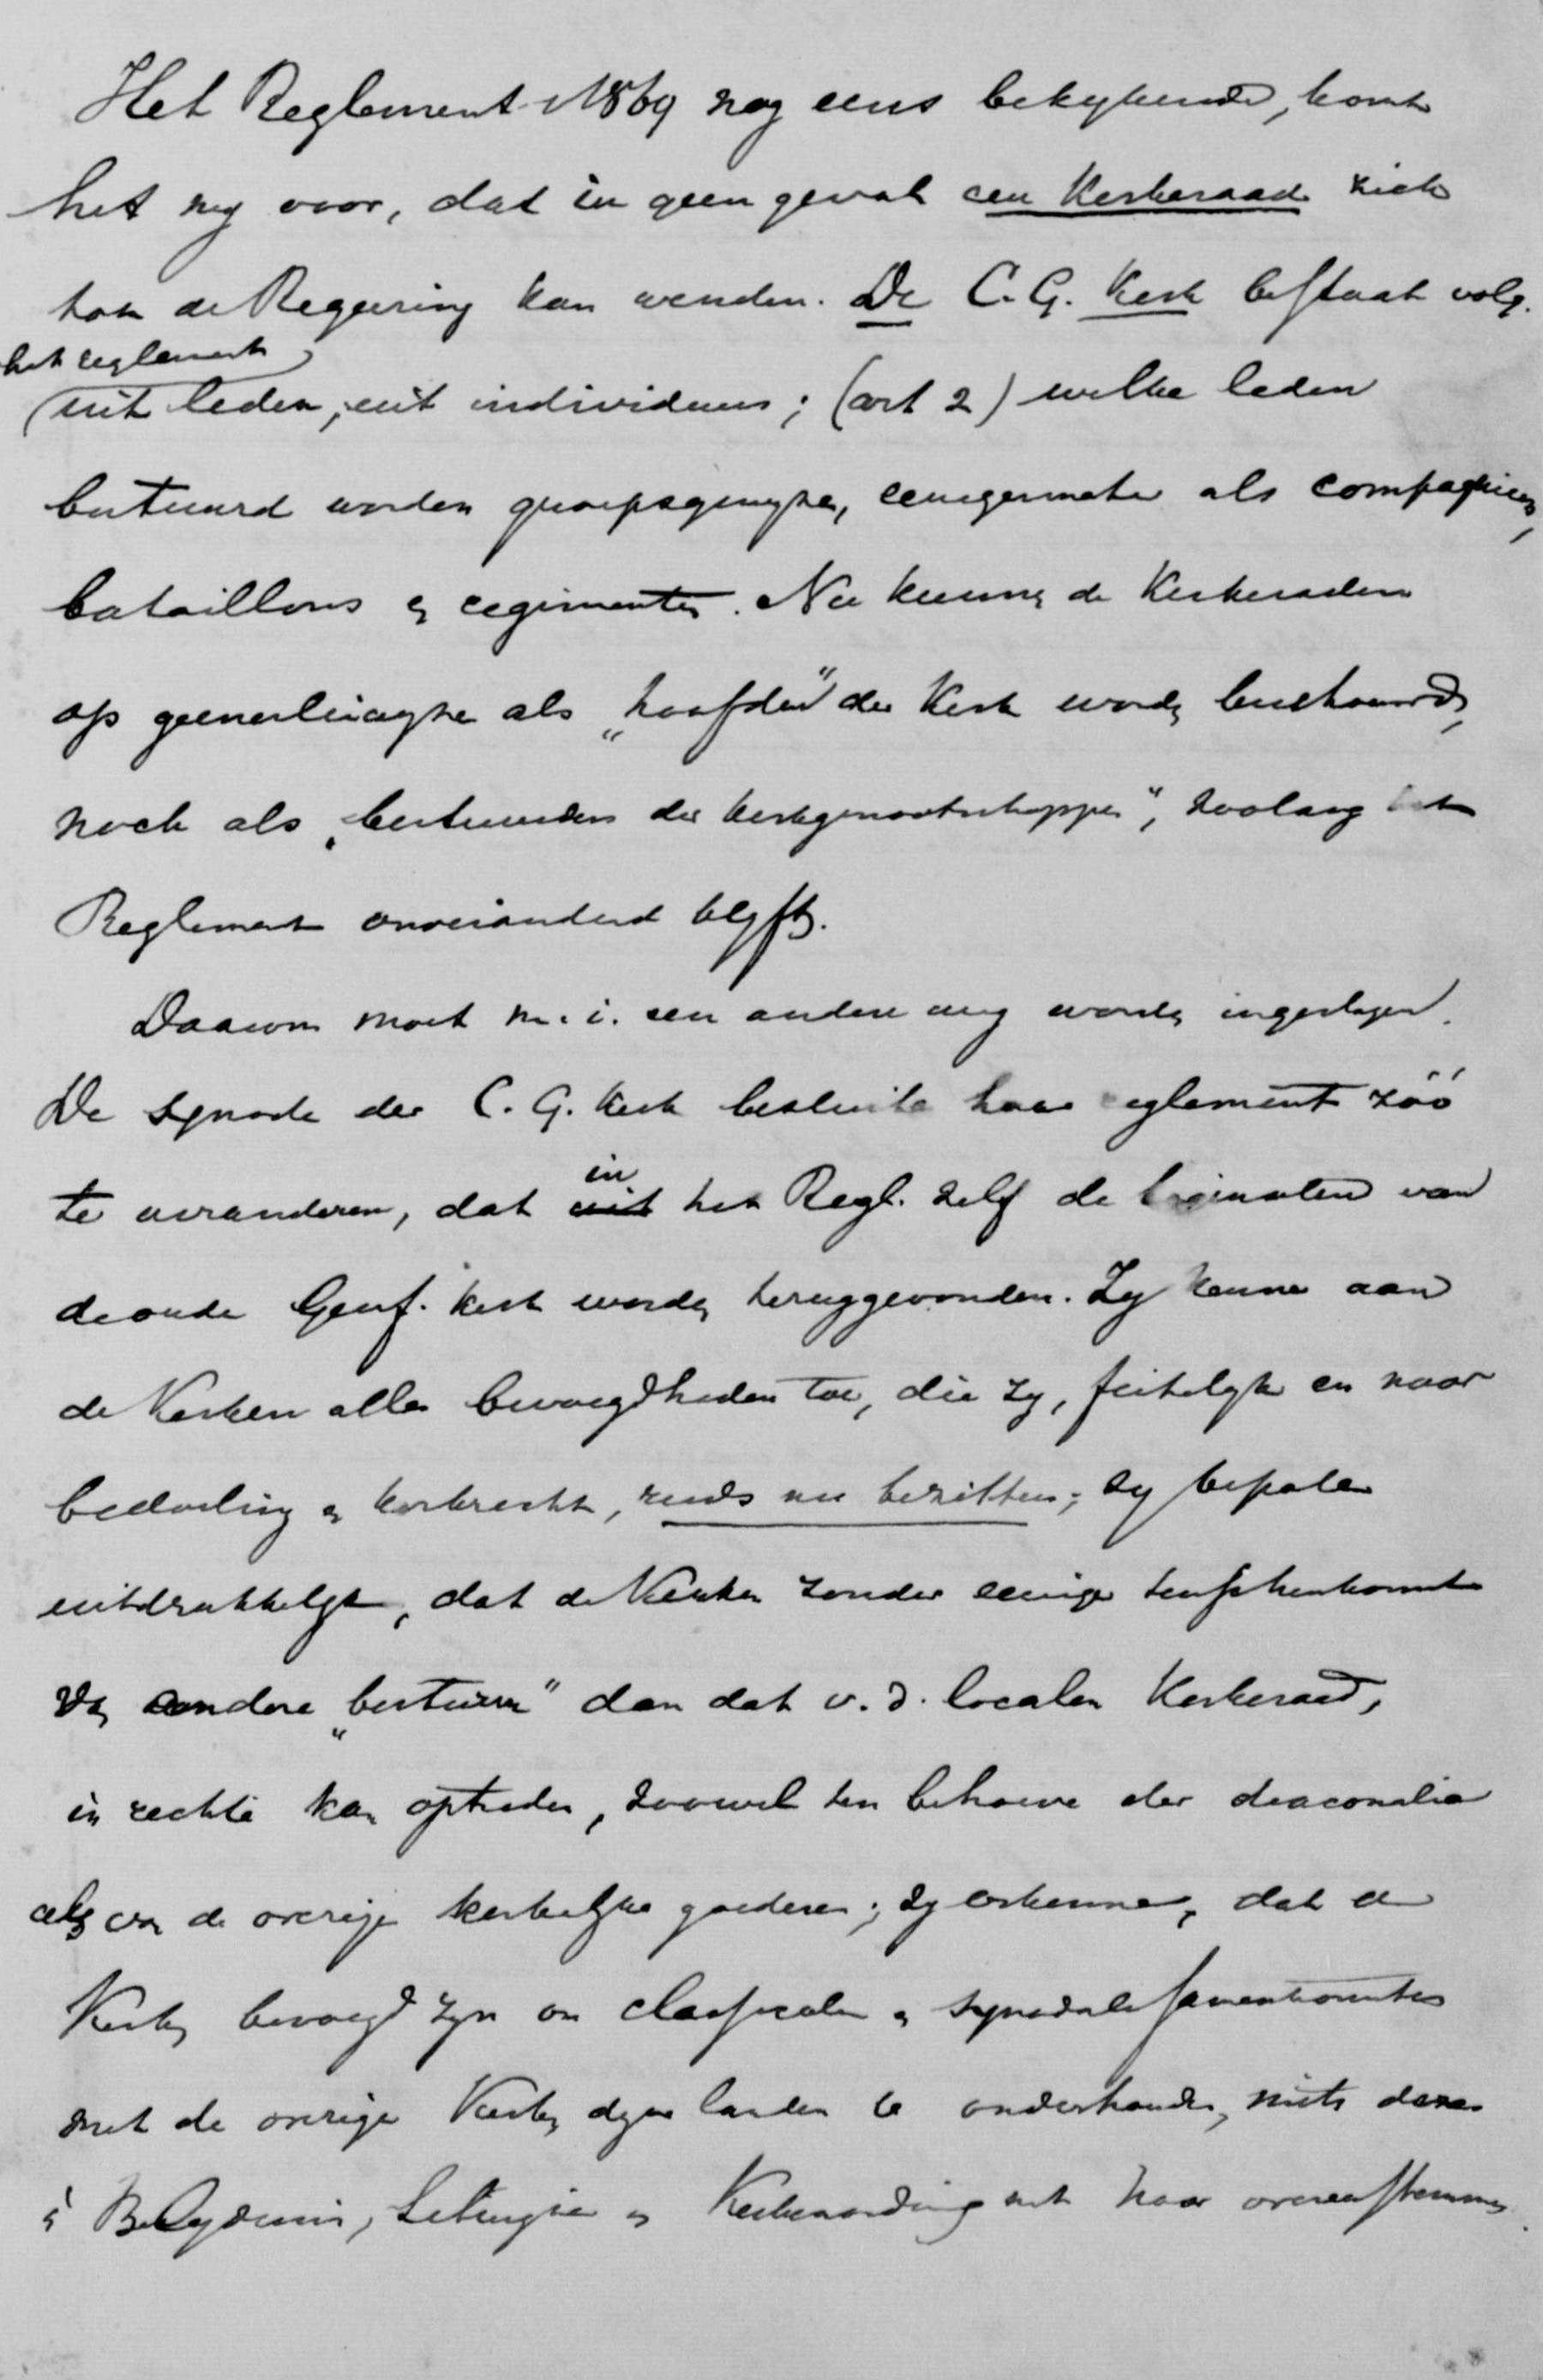 Het Reglement 1869 nog eens bekykende, komt
het my voor, dat in geen geval een Kerkeraad zich
tot de Regeering kan wenden. De C. G. Kerk bestaat volg.
het reglement
uit leden, uit individuen; (art 2) welke leden
bestuurd worden groepsgewyze, eenigermate als compagnieen,
bataillons en regimenten. Nu kunnen de Kerkeraden
op geenerlei wyze als „hoofden" der Kerk worden beschouwd,
noch als „bestuurders der kerkgenootschappen", zoolang het
Reglement onveranderd blyft.
Daarom moet m. i. een andere weg worden ingeslagen.
De Synode der C. G. Kerk besluite haar reglement zóó
te veranderen, dat in uit het Regl. zelf de beginselen van
de oude Geref. kerk worden teruggevonden. Zy kenne aan
de Kerken alle bevoegdheden toe, die zy, feitelyk en naar
bedoeling en kerkrecht, reeds nu bezitten; zy bepale
uitdrukkelyk, dat de Kerken zonder eenige tusschenkomst
van andere „besturen" dan dat v. d. localen Kerkeraad,
in rechte kan optreden, zoowel ten behoeve der diaconalia
als van de overige kerkelyke goederen; zy erkenne, dat de
Kerken bevoegd zyn om classicale en synodale samenkomsten
met de overige Kerken dezer landen te onderhouden, mits deze
in Belydenis, Liturgie en Kerkenordening met haar overeenstemmen.